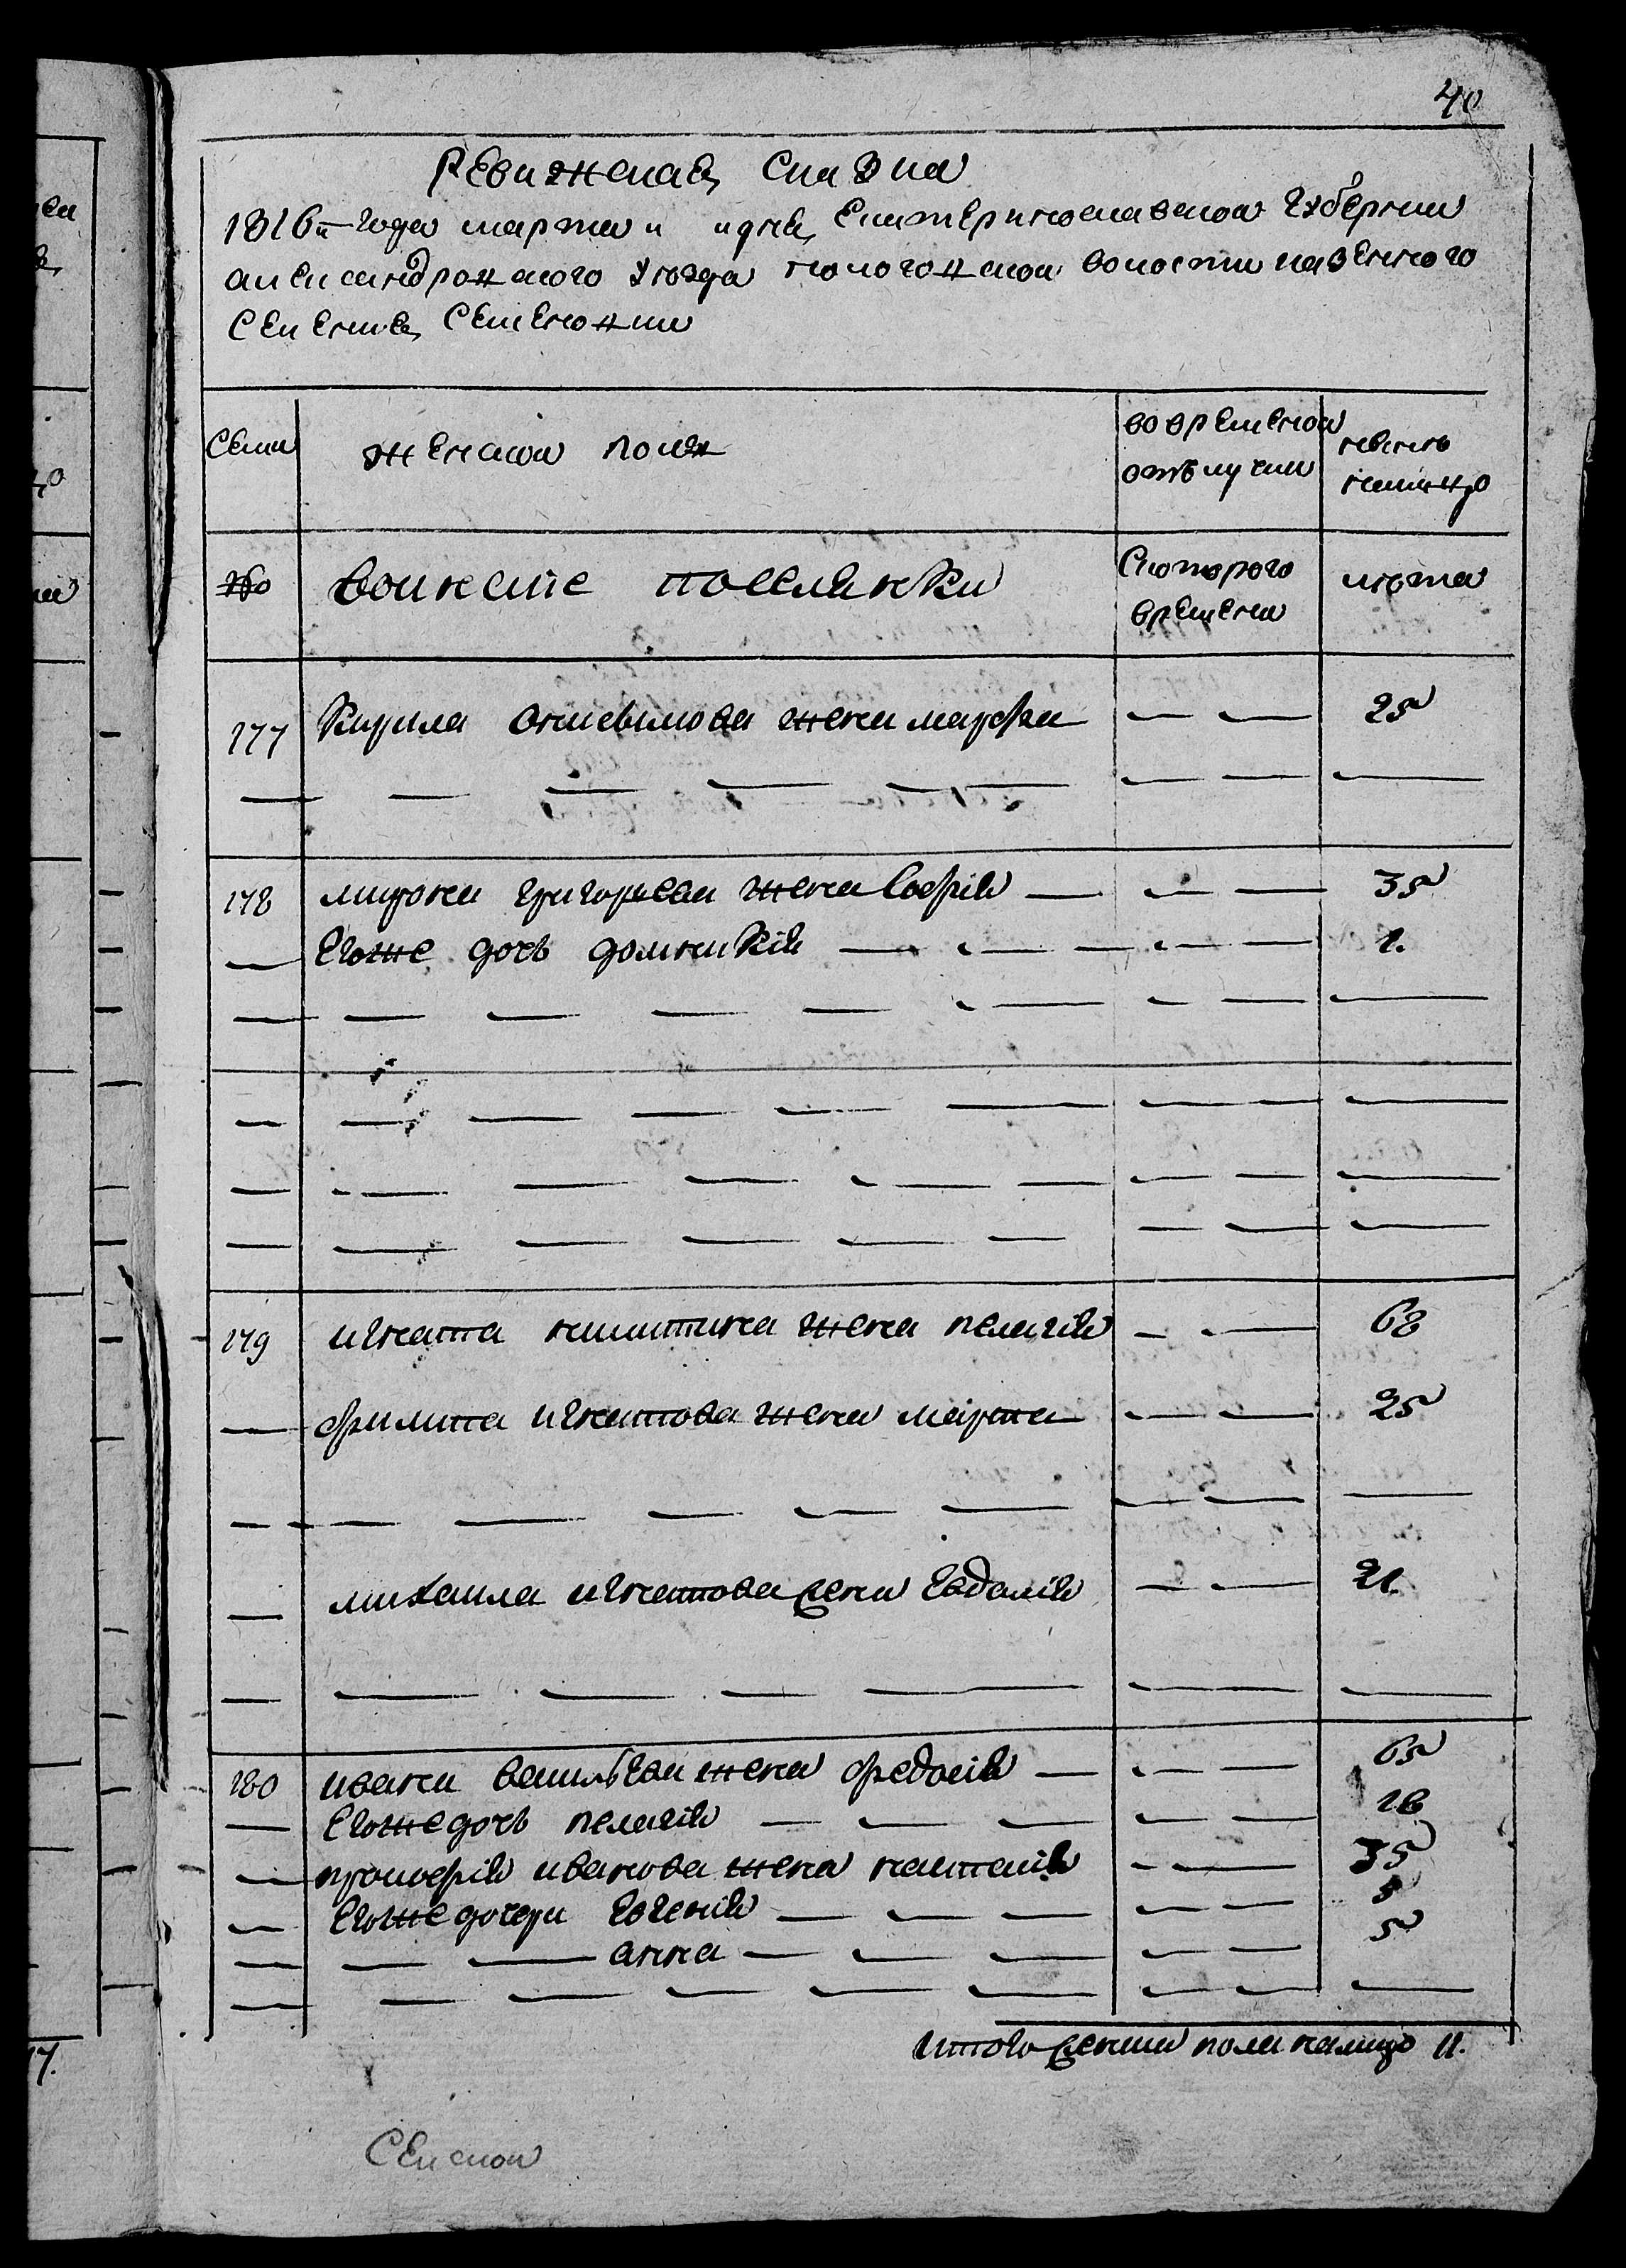 40
Ревижская Сказка
1816й года марта и дня Екатеринославской губернии
александровского уезда пологовской волости казенного
Селения Семеновки
Семи женской полъ во временной отълучки ныне налицо
воинские поселянки Скоторого времени лета
177 Кирила жена марфа — — 25
178 мирона григорьева жена София — — — 35
— Егоже дочь домникия — — — — — 1.
179 игната никитина жена пелагия — — 68
— филипа игнатова жена марфа — — 25
— михаила игнатова жена Евдокия — — 21
180 ивана васильева жена федосия — — — 65
— Егоже дочь пелагия — — — — — 16
— прокофия иванова жена наталия — — 35
— Егоже дочери Евгения — — — — — 5
— — — анна — — — — — 5
Итого женска пола налицо 11.
17.